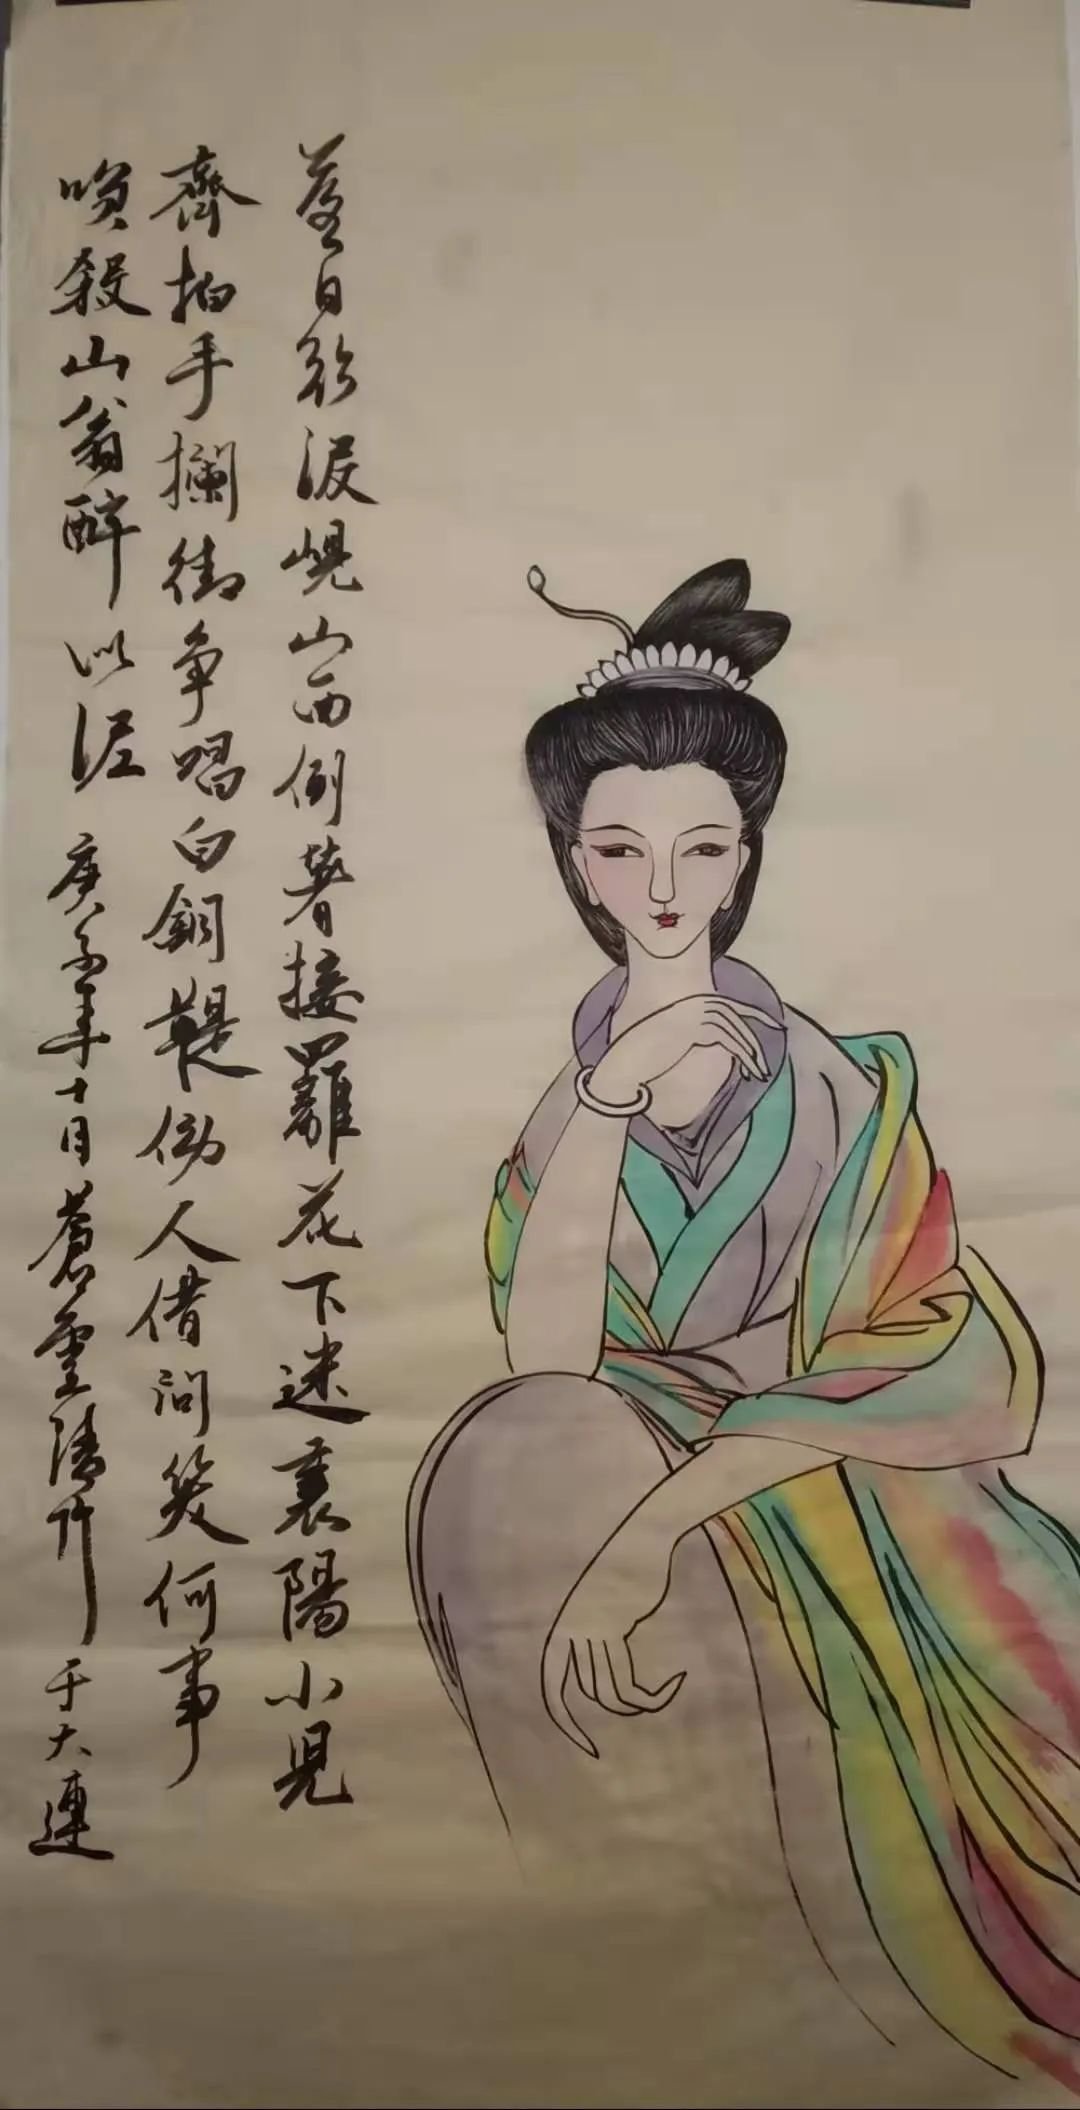 落日欲没岘山西倒著接䍦花下迷襄陽小兒
齊拍手攔街争唱白銅鞮傍人借问笑何事
笑殺山翁醉似泥 庚子年十月蒼雲 于大連